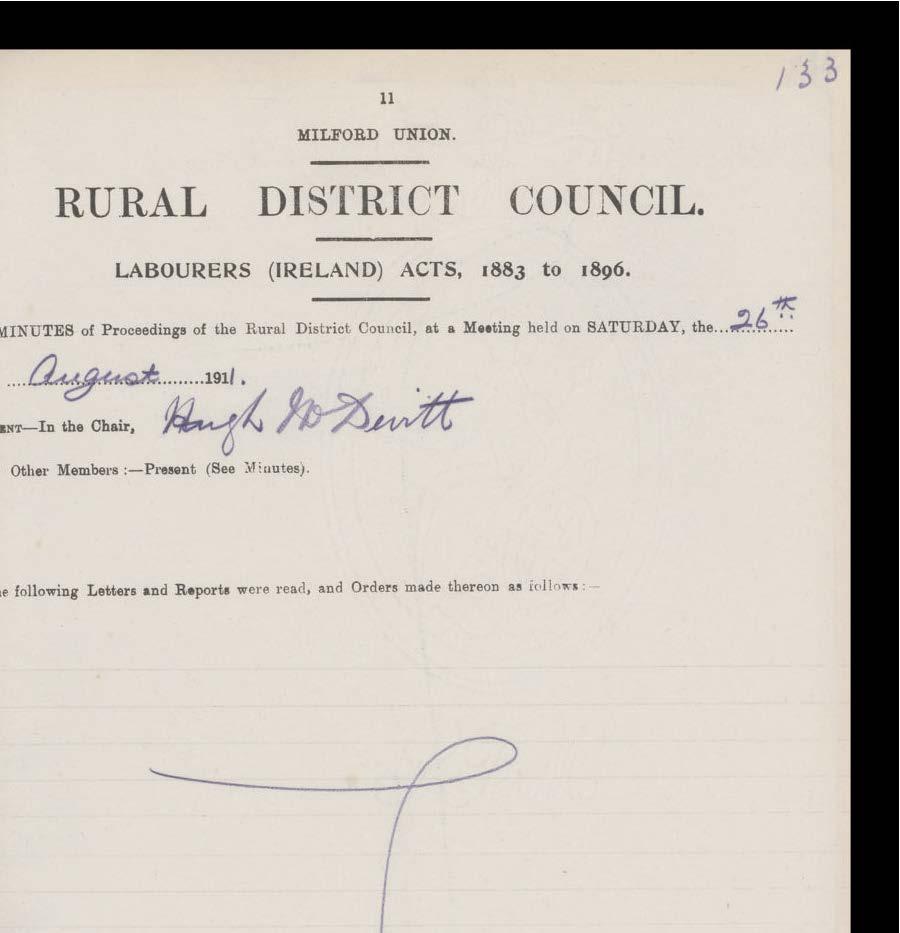 133
11
MILFORD UNION.
RURAL DISTRICT COUNCIL.
LABOURERS (IRELAND) ACTS, 1883 to 1896.
MINUTES of Proceedings of the Rural District Council, at a Meeting held on SATURDAY, the...26th......
....August.........1911.
ENT—In the Chair, Hugh McDevitt
Other Members :—Present (See Minutes).
e following Letters and Reports were read, and Orders made thereon as follows:—